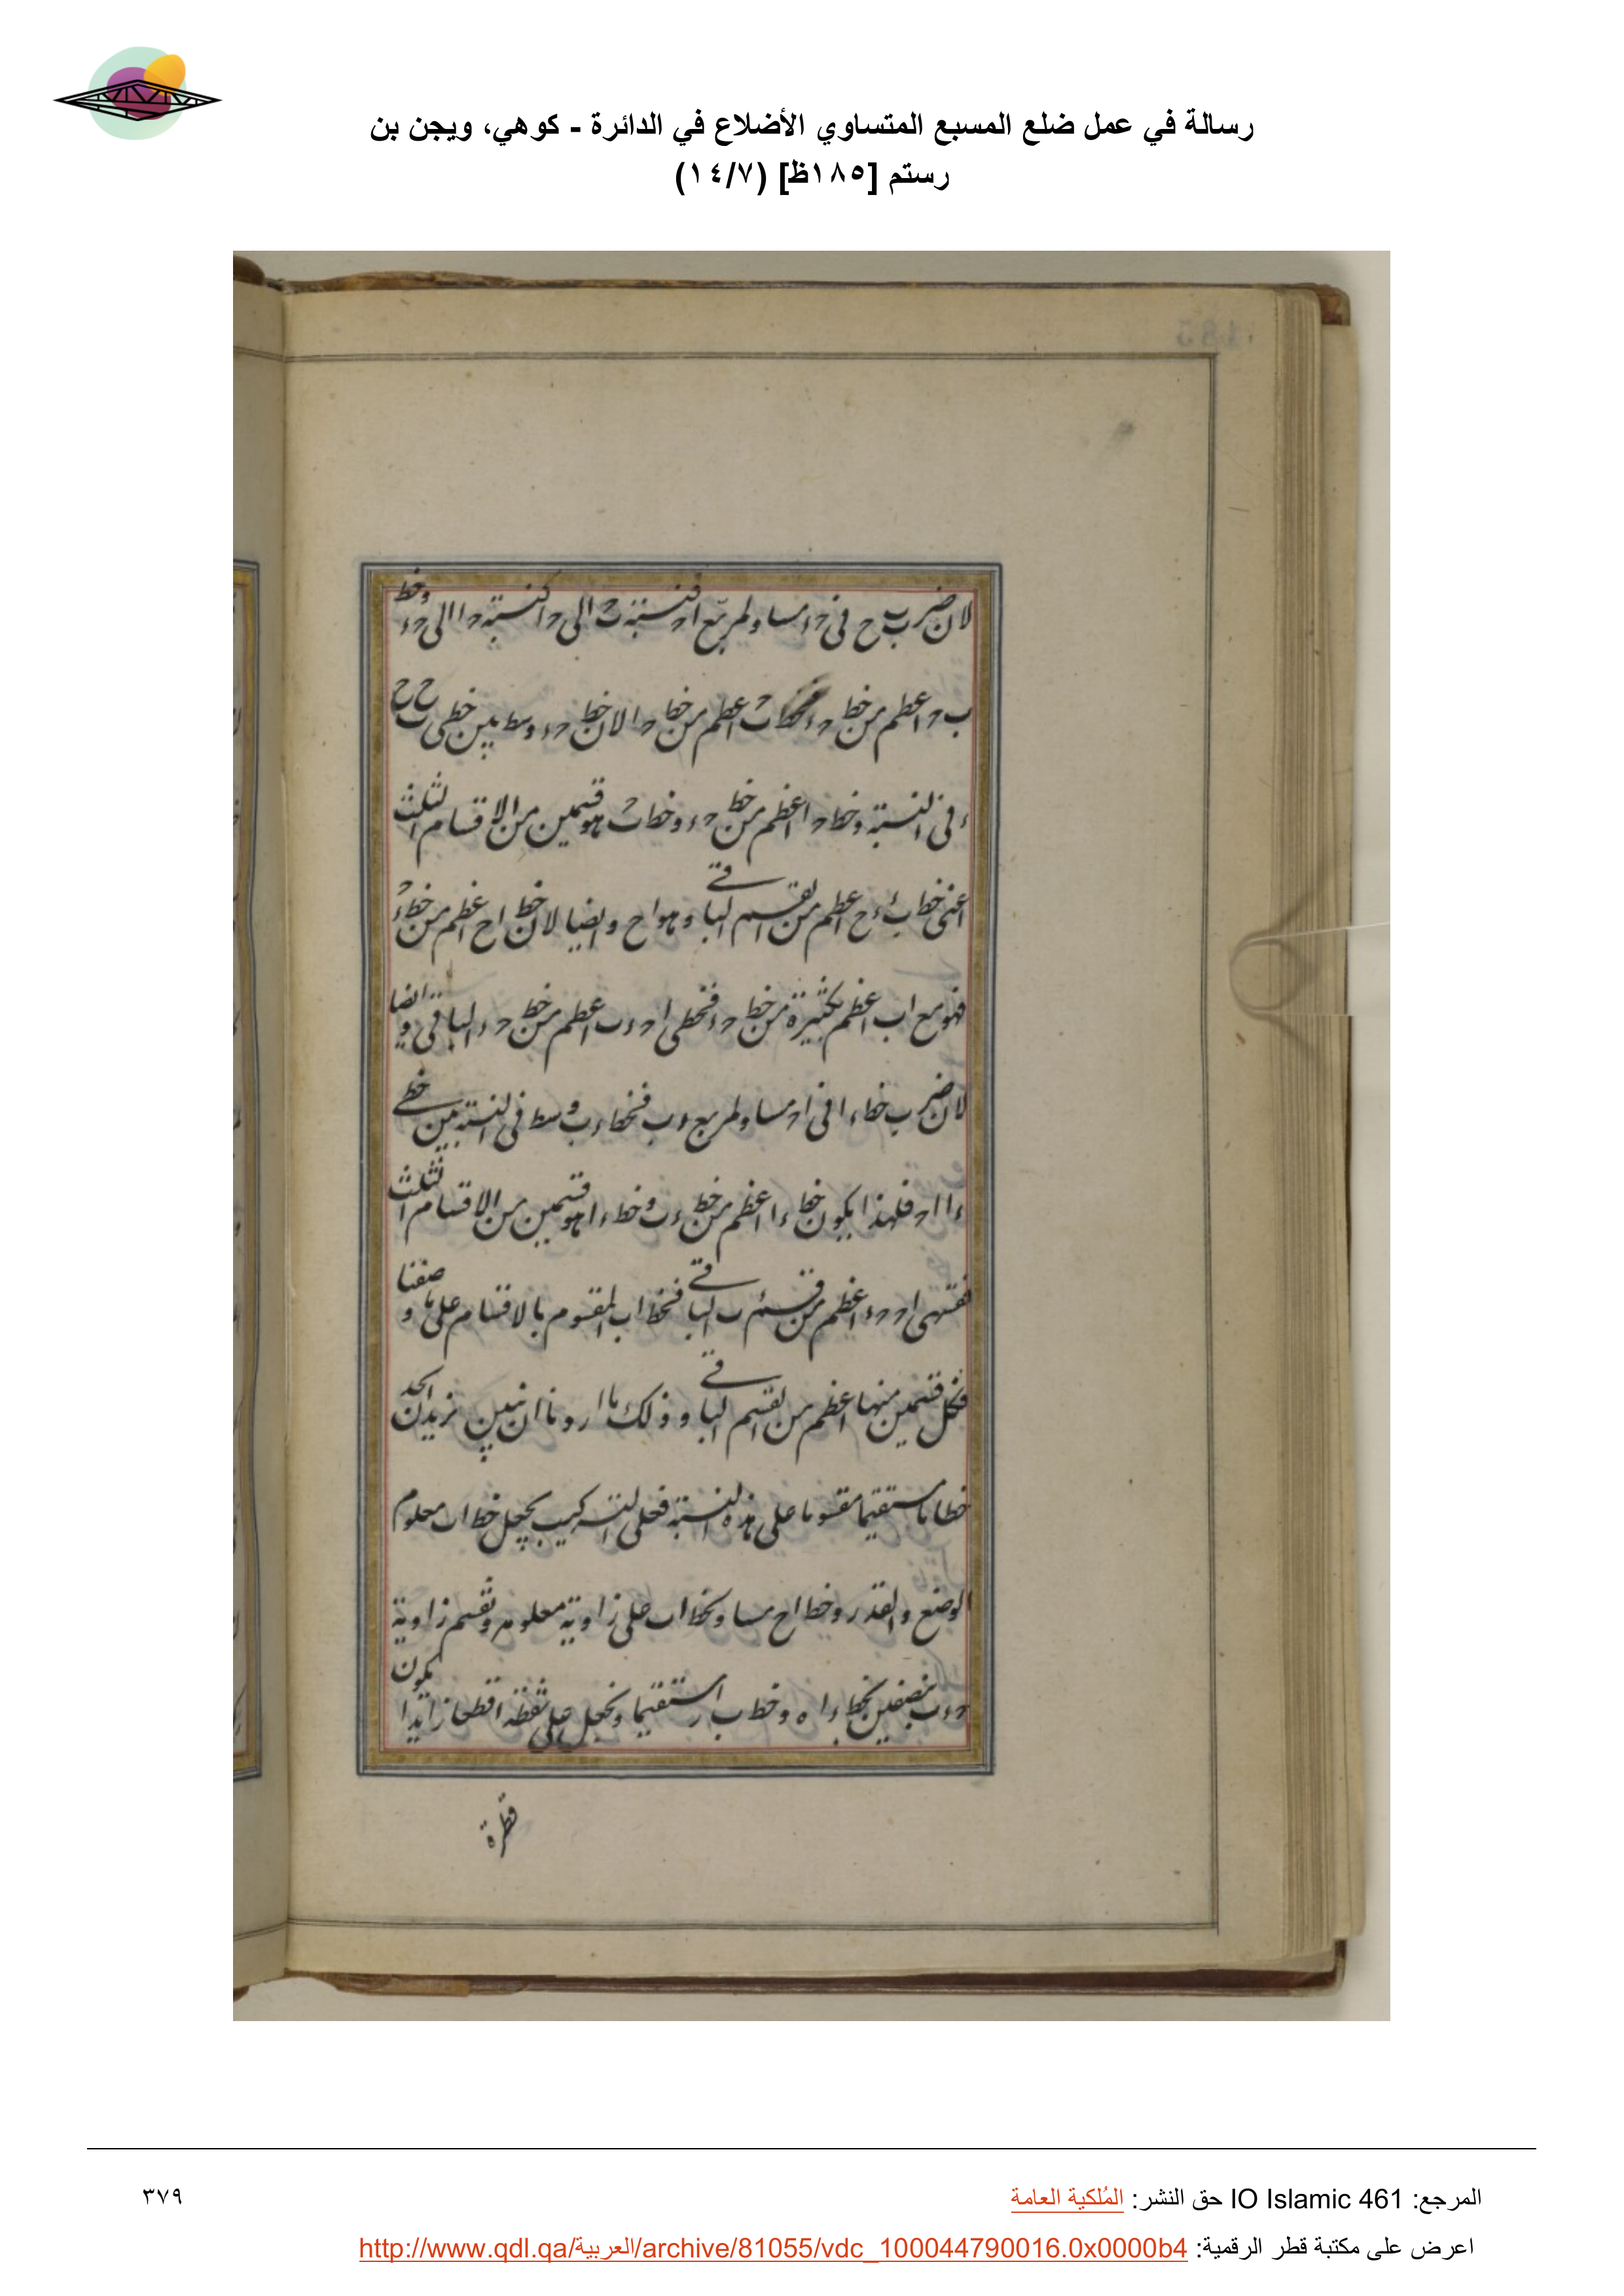 رسالة في عمل ضلع المسبع المتساوي الأضلاع في الدائرة - كوهي، ويجن بن
رستم [١٨٥ظ] (١٤/٧)
لان ضرب ب ح في حء مساو لمربع اح فنسبة ب ح الى ح ا كنسبة ح ا الى حء وخط
ب ح اعظم من خط اعظم من خط ح ا لان خط حء وسط بين خطى
ء في النسبة وخط ح ا اعظم من خط حء وخط ب ح هو قسمين من الاقسام الثلث
اعنى خط اعظم من القسم الباقي وهو ا ح وايضا لان خط ا ح اعظم من خط
فهو مع ا ب اعظم بكثيرة من خط حء فخطى اعظم من خط حء الباقي وايضا
لان ضرب خط ء ا في ا ح مساو لمربع ء ب فخط ء ب وسط في النسبة بين خطي
ء ا ا ح فلهذا يكون خط ء ا اعظم من خط ء ب وخط ء ا هو قسمين من الاقسام الثلث
فقسمى ا ح حء اعظم من قسم ء ب الباقي فخط ا ب المقسوم بالاقسام على ما وصفنا
فكل قسمين منها اعظم من القسم الباقي وذلك ما اردنا ان نبين نريد ان نجد
خطا مستقيما مقسوما على هذه النسبة فعلى التركيب نجعل خط ا ب معلوم
الوضع والقدر وخط ا ح مساو لخط ا ب على زاوية معلومة ونقسم زاوية
بنصفين بخط وخط ب ا ه مستقيما ونجعل على نقطة ا قطعا زايدا يكون
قطره
المرجع: IO Islamic 461 حق النشر: المُلكية العامة
٣٧٩
اعرض على مكتبة قطر الرقمية: http://www.qdl.qa/العربية/archive/81055/vdc_100044790016.0x0000b4